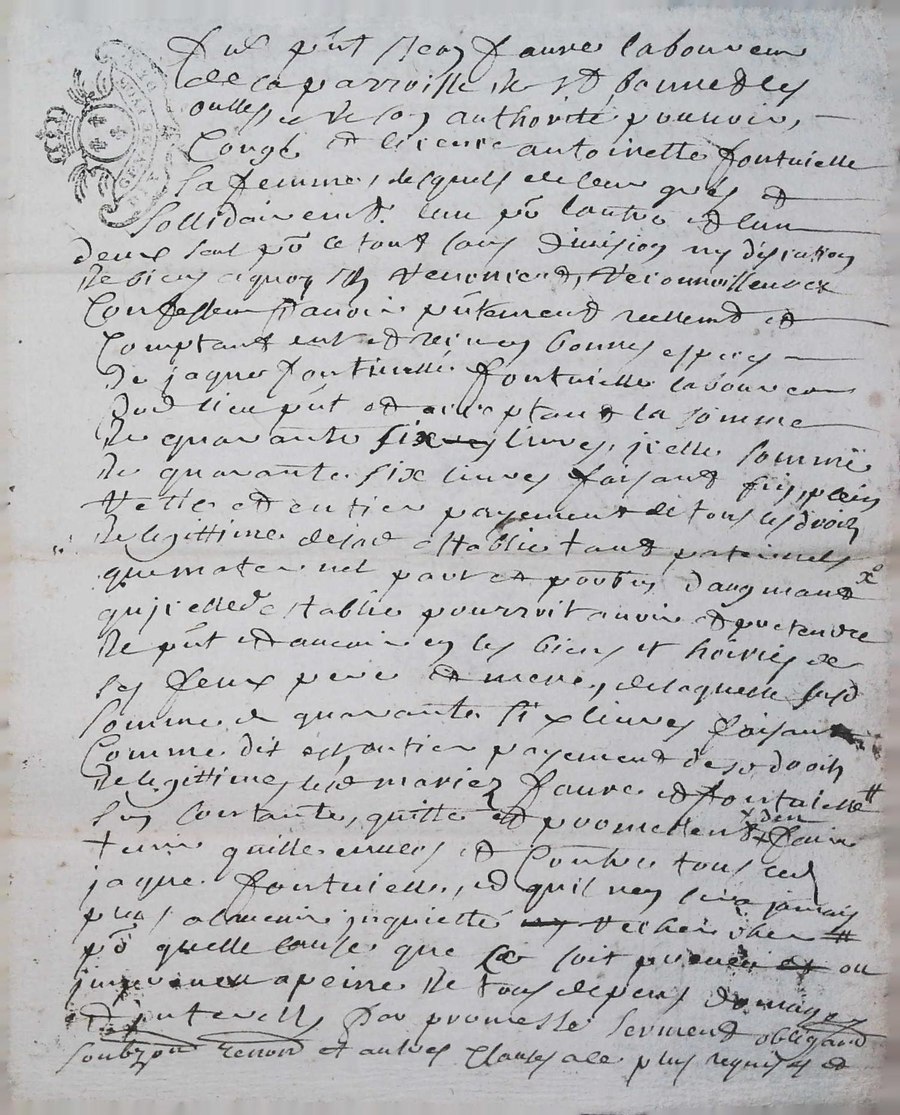 fut pnt Jean faure laboureur
de la parroisse de St bonnet les
oulles et de son authorité pouvoir,
Congé et licence antoinette fontvielle
Sa femme, lesquels de leur grés et
Sollidairement. lun pr lautre et lun
deux seul pr le tout sans division ny discution
de biens a quoy ils renoncent,
Confessent avoir pntement reellemt et
Comptant eut et reçeu en bonnes especes
De jaque fontvielle laboureur
dud lieu pnt et acceptant la somme
de quarante six livres, jcelle somme
de quarante six livres faisant fin, plein
et entier payement de tous les droits
de legittime de lad establie tant paternels
que maternel part et portion daugmant
qu jcelle establie pourroit avoir et pretendre
de pnt et advenir en les biens et hoiries de
ses feux pere et mere, de laquelle susd
somme de quarante six livres faisant
Comme dit est entier payement desd droits
de legittime, lesd mariez faure et fontvielle
sen contante, quitte et promettent den faire
tenir quitte envers et Contre tous led
jaque fontvielle, et quil nen sera jamais
plus a lavenir jnquietté ny recherché
pr quelle cause que ce soit preveue ou
jmpreveue a peine de tous depens domages
et jnterests par promesse serment obligaon
soubzon renon et autres Clauses a ce plus requises et